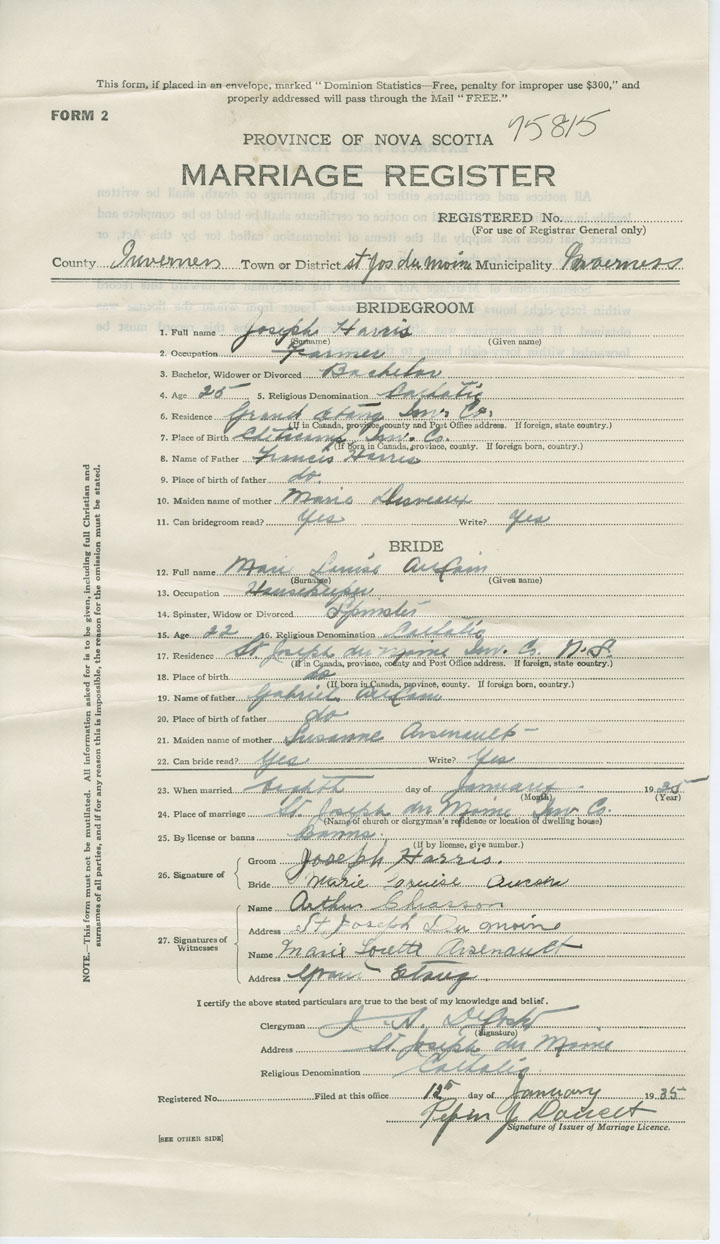 This form, if placed in an envelope, marked "Dominion Statistics—Free, penalty for improper use $300," and
properly addressed will pass through the Mail "FREE."
FORM 2
75815
PROVINCE OF NOVA SCOTIA
MARRIAGE REGISTER
REGISTERED No.
(For use of Registrar General only)
County Inverness Town or District St Jos du Moine Municipality Inverness
BRIDEGROOM
1. Full name Joseph Harris
(Surname) (Given name)
2. Occupation Farmer
3. Bachelor, Widower or Divorced Bachelor
4. Age 25 5. Religious Denomination Catholic
6. Residence Grand Etang Inv. Co.
(If in Canada, province, county and Post Office address. If foreign, state country.)
7. Place of Birth Cheticamp Inv. Co.
(If born in Canada, province, county. If foreign born, country.)
8. Name of Father Francis Harris
9. Place of birth of father do.
10. Maiden name of mother Marie Desveaux
11. Can bridegroom read? Yes Write? Yes
BRIDE
12. Full name Marie Louise AuCoin
(Surname) (Given name)
13. Occupation Housekeeper
14. Spinster, Widow or Divorced Spinster
15. Age 22 16. Religious Denomination Catholic
17. Residence St Joseph du Moine Inv. Co. N.S.
(If in Canada, province, county and Post Office address. If foreign, state country.)
18. Place of birth do
(If born in Canada, province, county. If foreign born, country.)
19. Name of father Gabriel AuCoin
20. Place of birth of father do
21. Maiden name of mother Susanne Arsenault
22. Can bride read? Yes Write? Yes
23. When married Eighth day of January 1935
(Month) (Year)
24. Place of marriage St. Joseph du Moine Inv Co.
(Name of church or clergyman's residence or location of dwelling house)
25. By license or banns Banns.
(If by license, give number.)
26. Signature of
Groom Joseph Harris.
Bride Marie Louise Aucoin
27. Signatures of Witnesses
Name Arthur Chiasson
Address St Joseph Du moine
Name Marie Lorette Arsenault
Address Grand Etang
I certify the above stated particulars are true to the best of my knowledge and belief.
Clergyman J. A. DeCoste
(Signature)
Address St. Joseph du Moine
Religious Denomination Catholic
Registered No. Filed at this office 12th day of January 1935
J Doucet
Signature of Issuer of Marriage Licence.
[SEE OTHER SIDE]
NOTE.—This form must not be mutilated. All information asked for is to be given, including full Christian and
surnames of all parties, and if for any reason this is impossible, the reason for the omission must be stated.